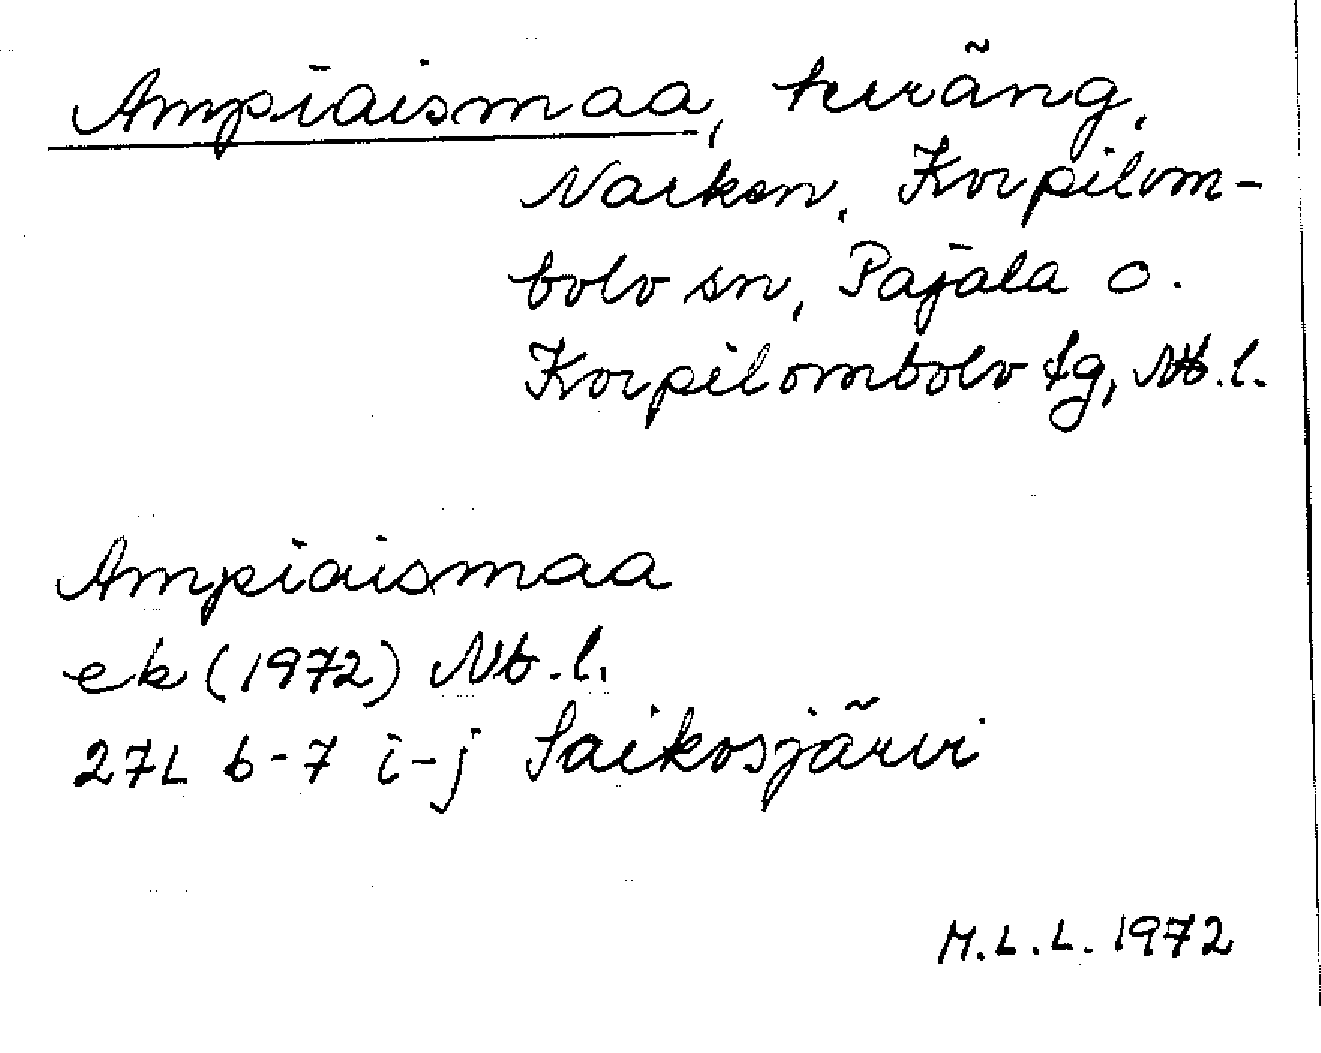 Ampiaismaa, terräng,
Narken, Korpilom-
bolo sn, Pajala o.
Korpilombolo tg, Nb.l.
Ampiaismaa
ek (1972) Nb.l.
27L 6-7 i-j Saikosjärvi
M.L.L. 1972